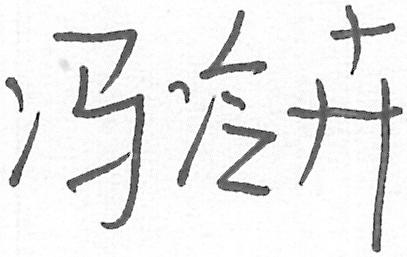 冯冷卉